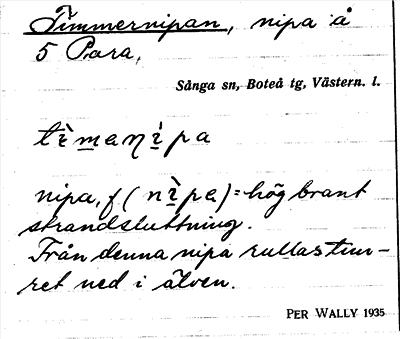 Timmernipan, nipa å
5 Para,
Sånga sn, Boteå tg, Västern. l.
tì̀manì̀pa
nipa, f (nì̀pa) = hög brant
strandsluttning.
Från denna nipa rullas tim-
ret ned i älven.
PER WALLY 1935